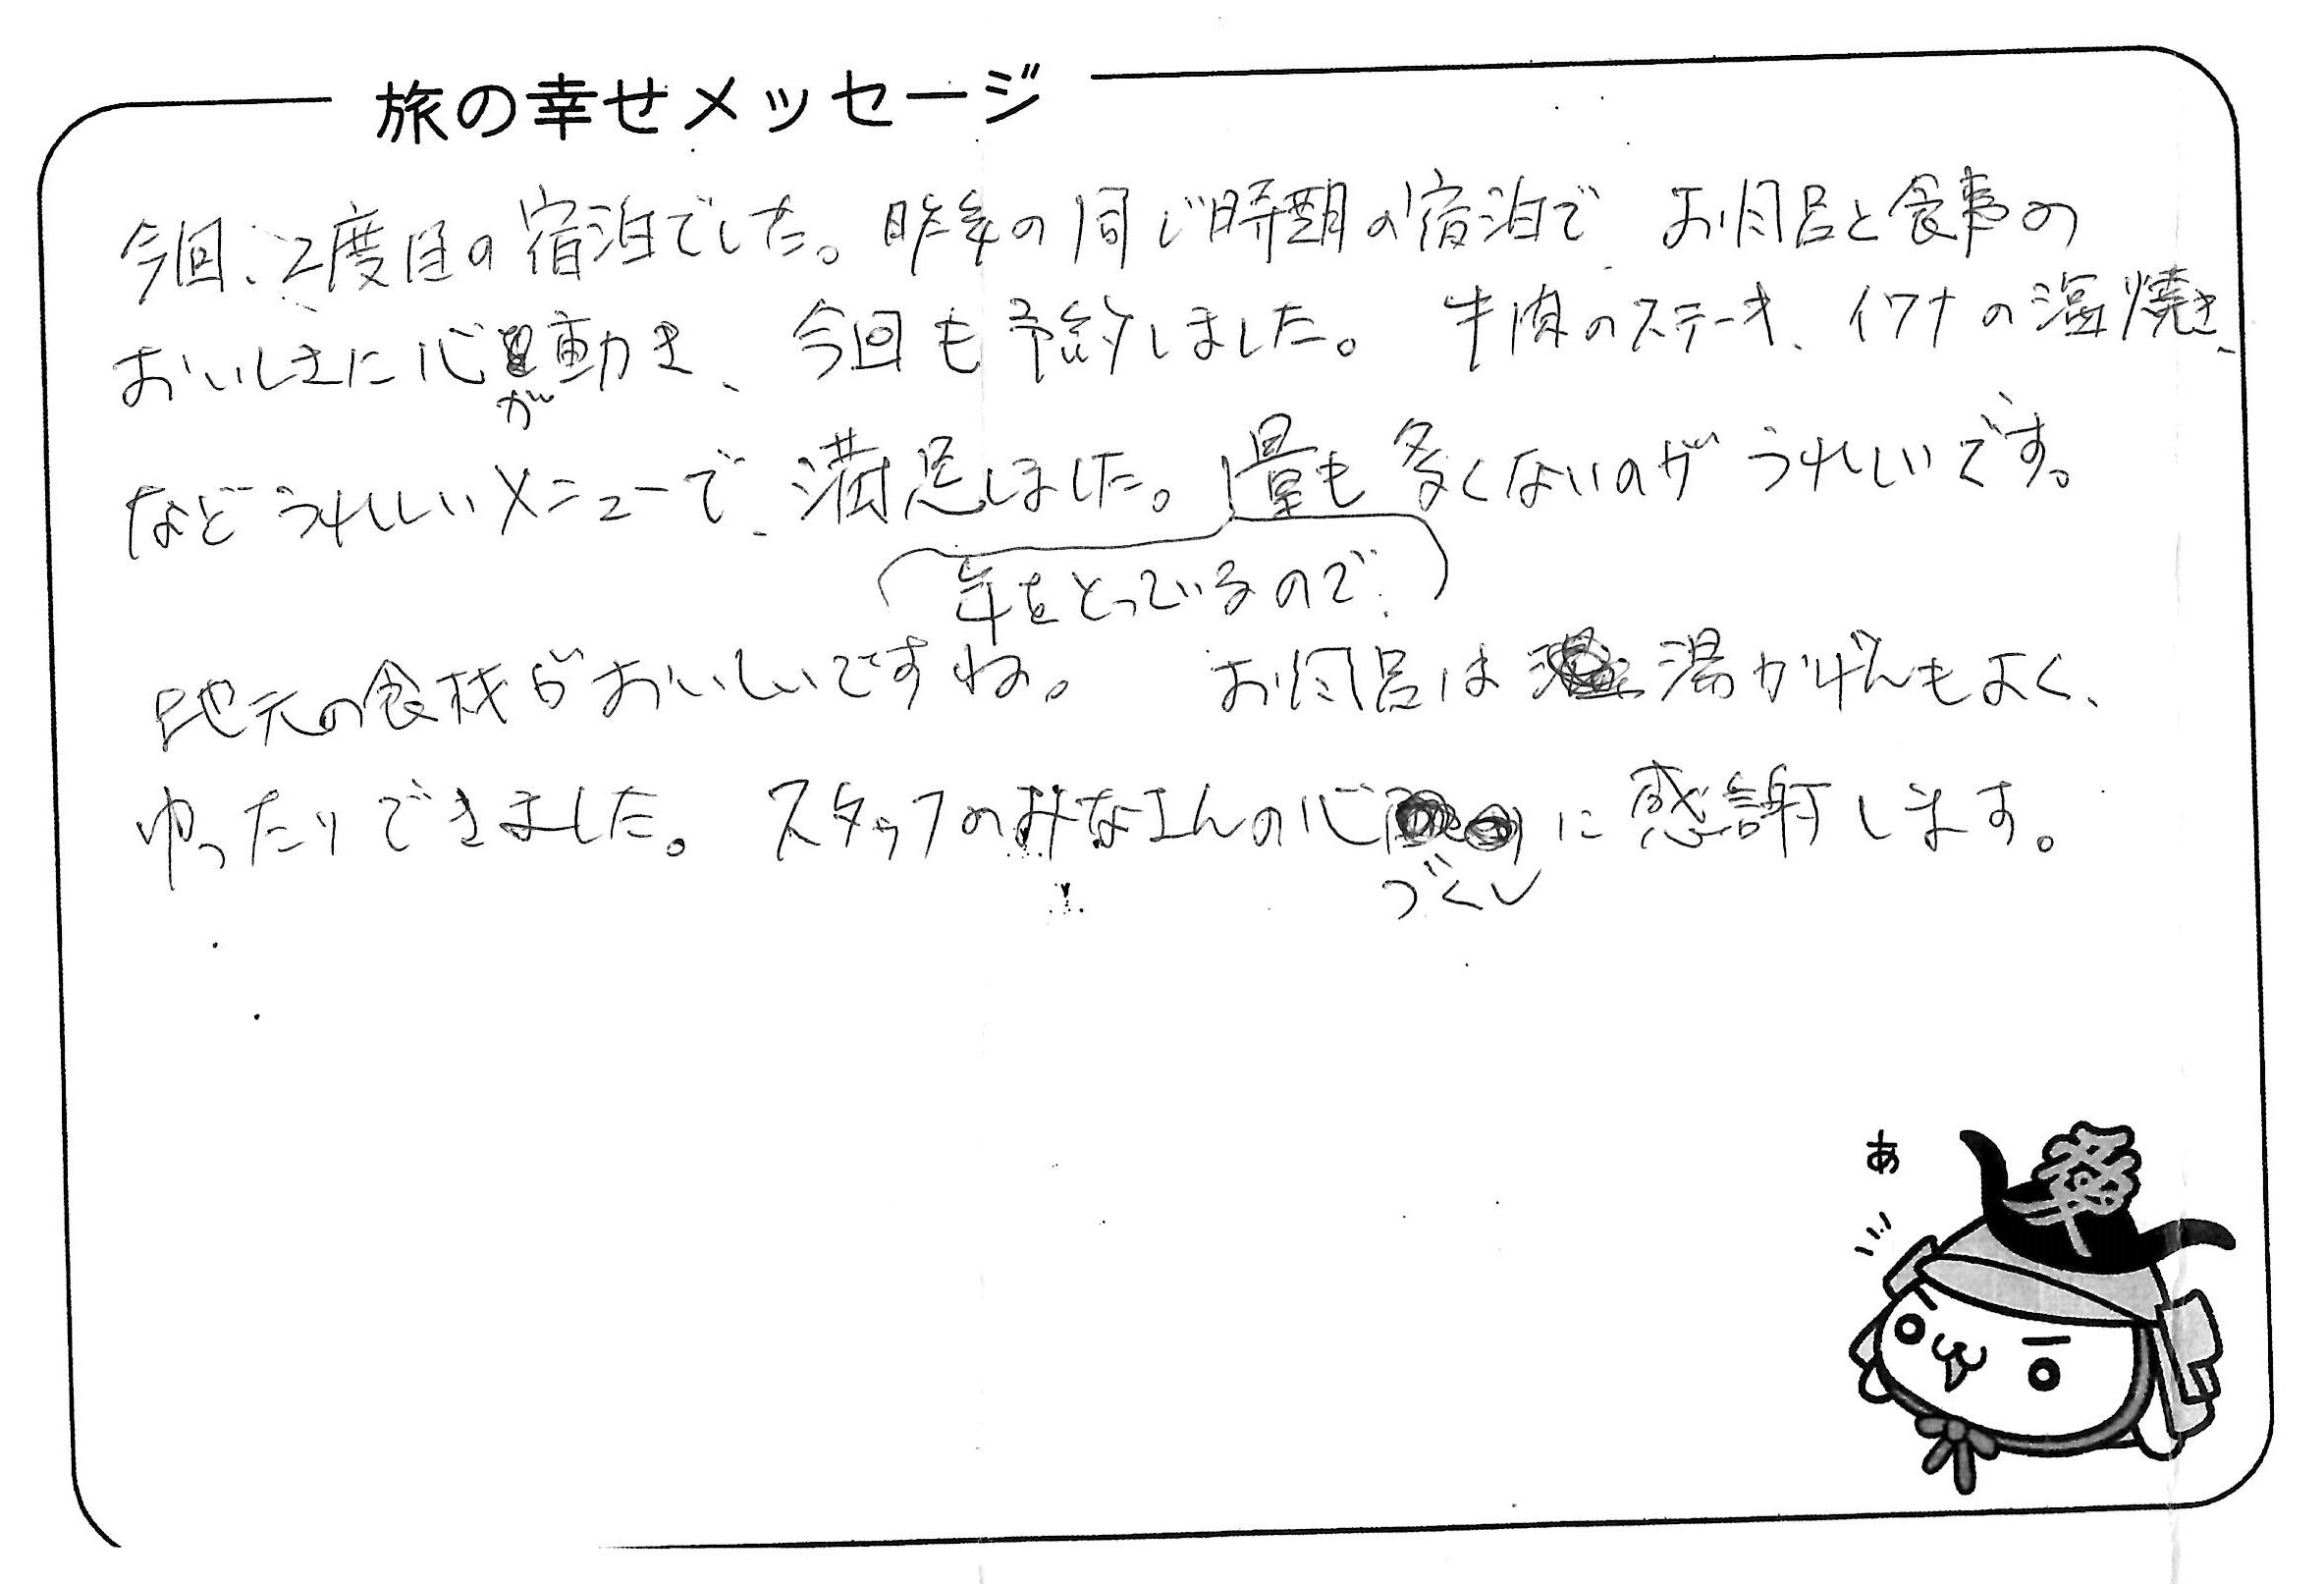 旅の幸せメッセージ
今回、2度目の宿泊でした。昨年の同じ時期の宿泊で お風呂と食事の
おいしさに心が動き、今回も予約しました。牛肉のステーキ、イワナの塩焼き、
などうれしいメニューで、満足しました。量も多くないのがうれしいです。
(年をとっているので)
地元の食材がおいしいですね。お風呂は湯かげんもよく、
ゆったりできました。スタッフのみなさんの心づくしに感謝します。
あ